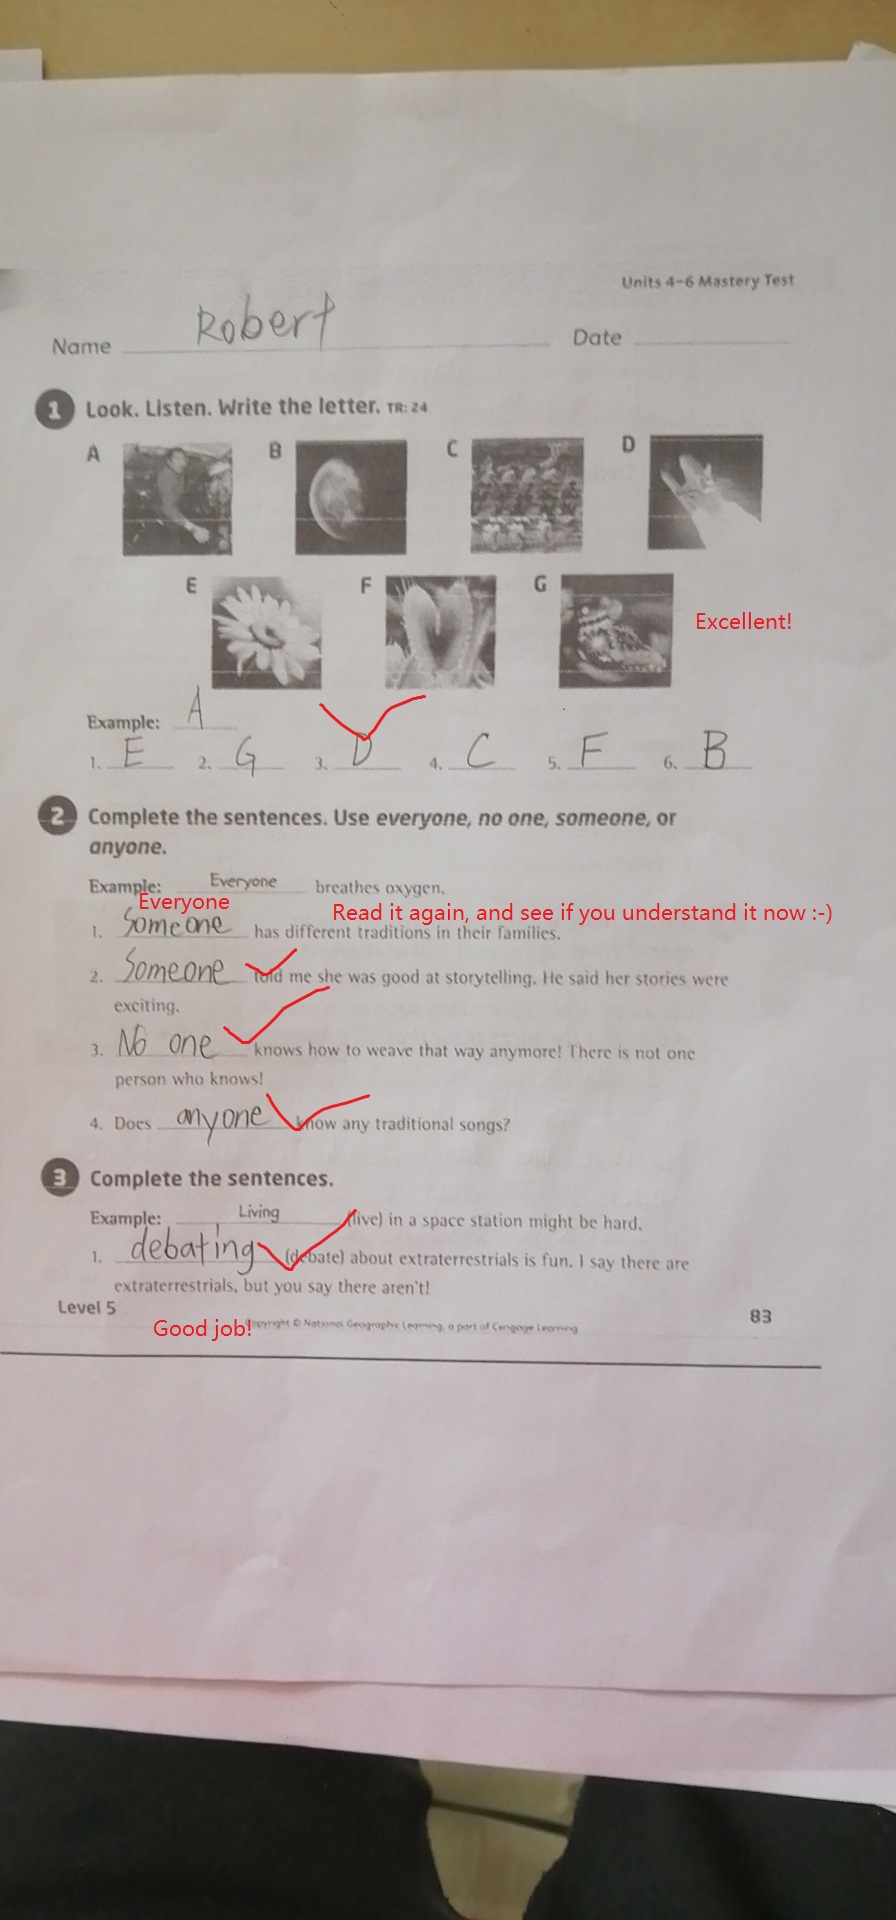 Units 4-6 Mastery Test
Name Robert Date
1 Look. Listen. Write the letter. TR: 24
A B C D
E F G
Excellent!
Example: A
1. E 2. G 3. D 4. C 5. F 6. B
2 Complete the sentences. Use everyone, no one, someone, or
anyone.
Example: Everyone breathes oxygen.
Everyone
Read it again, and see if you understand it now :-)
1. Someone has different traditions in their families.
2. Someone told me she was good at storytelling. He said her stories were
exciting.
3. No one knows how to weave that way anymore! There is not one
person who knows!
4. Does anyone know any traditional songs?
3 Complete the sentences.
Example: Living (live) in a space station might be hard.
1. debating (debate) about extraterrestrials is fun. I say there are
extraterrestrials, but you say there aren't!
Level 5
83
Good job!
Copyright © National Geographic Learning, a part of Cengage Learning